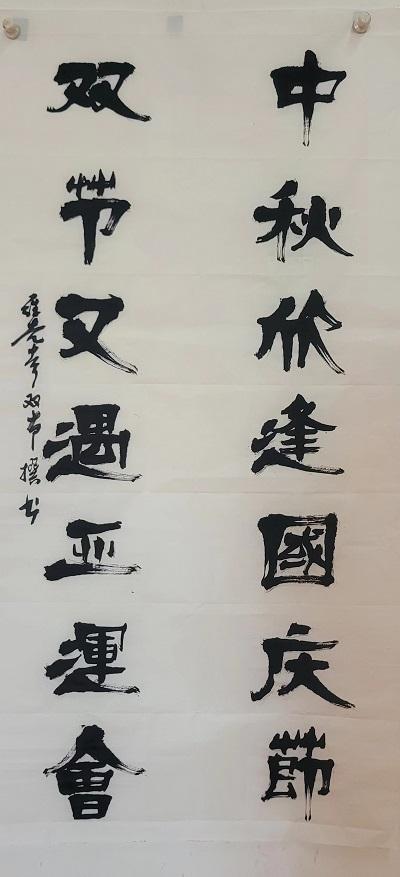 中秋欣逢國庆節
双节又遇亚運會
双节撰书